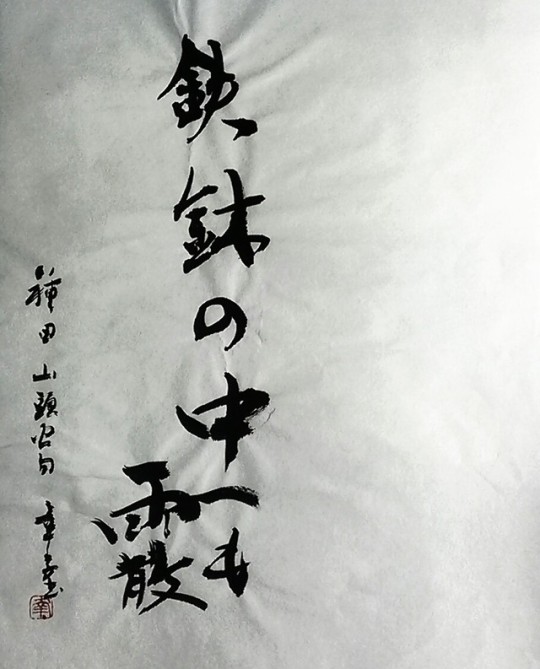 鉄鉢の中へも
霰
種田山頭火句
幸